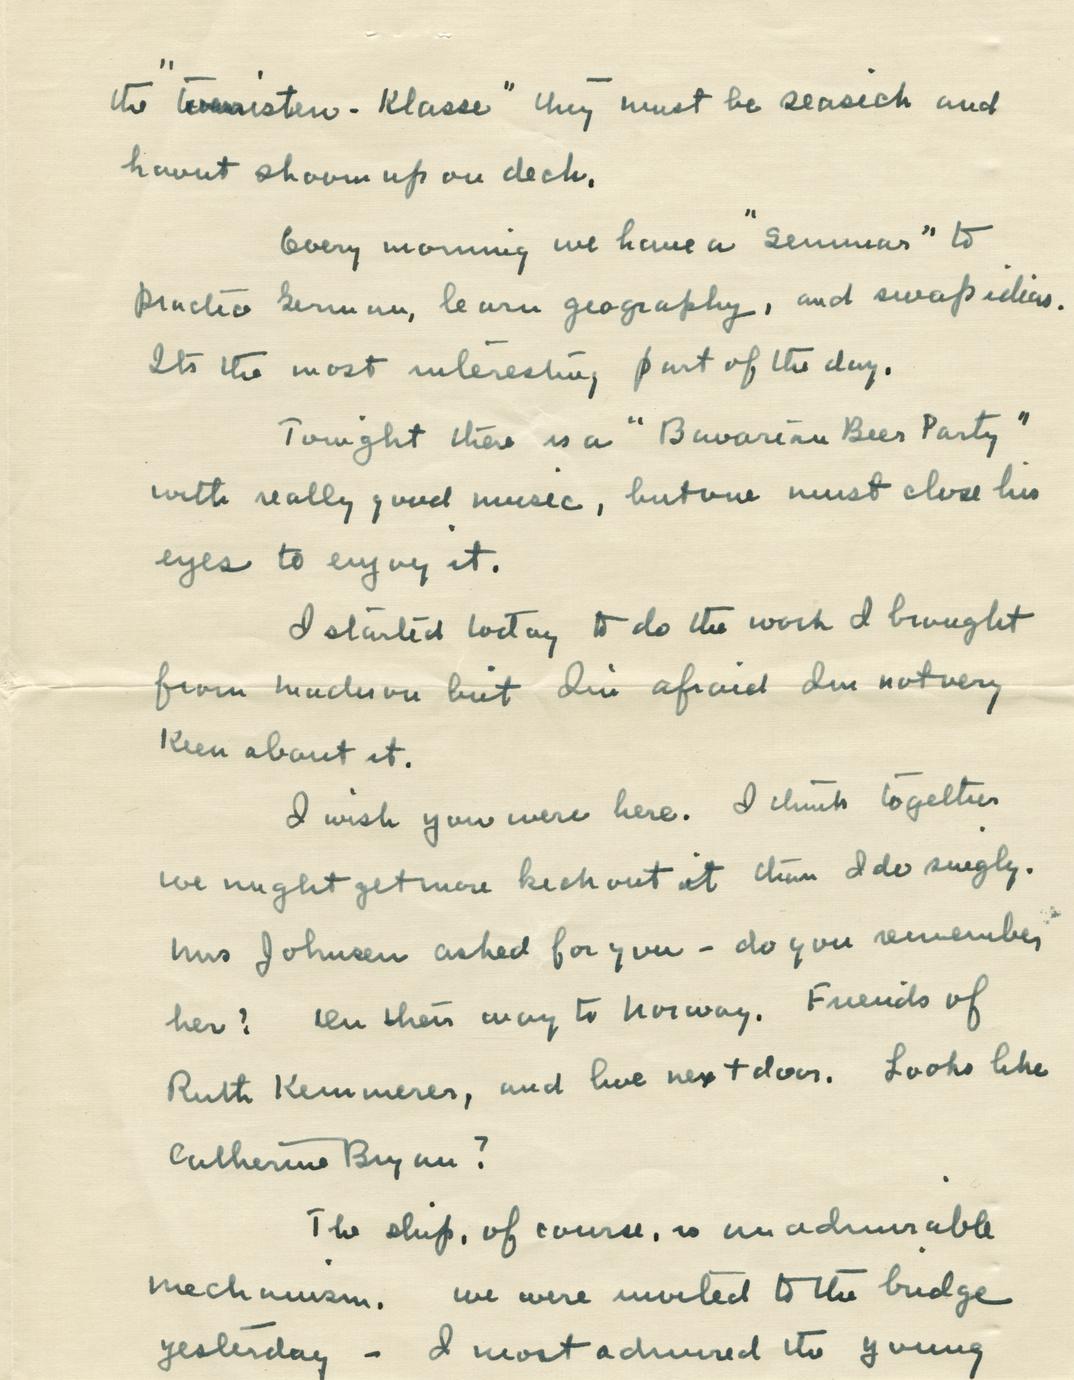 the "touristen - Klasse" they must be seasick and
havnt shown up on deck.
Every morning we have a "Seminar" to
practice German, learn geography, and swap ideas.
Its the most interesting part of the day.
Tonight there is a "Bavarian Beer Party"
with really good music, but one must close his
eyes to enjoy it.
I started today to do the work I brought
from Madison but Im afraid Im not very
Keen about it.
I wish you were here. I think together
we might get more kick out it than I do singly.
Mrs Johnsen asked for you - do you remember
her? On their way to Norway. Friends of
Ruth Kemmerer, and live next door. Looks like
Catherine Bryan?
The ship, of course, is an admirable
mechanism. We were invited to the bridge
yesterday - I most admired the young